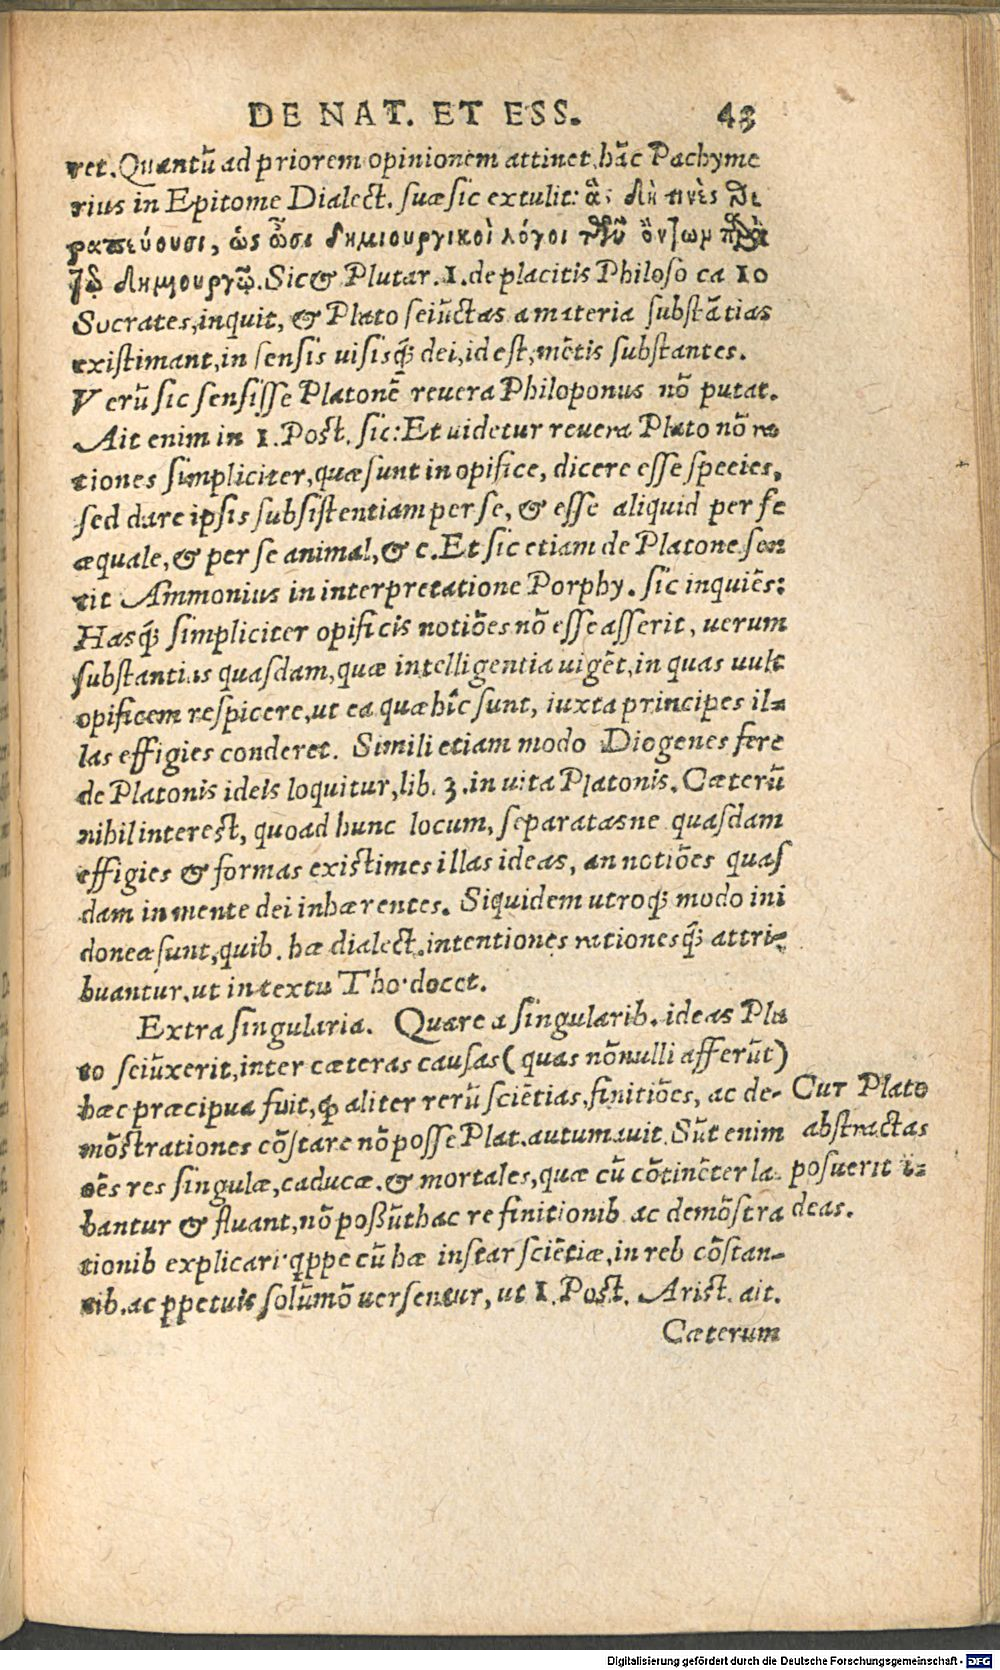 DE NAT. ET ESS. 43
ret. Quantũ ad priorem opinionem attinet, hãc Pachyme
rius in Epitome Dialect. suæ sic extulit: ἃ; δή τινὲς θε
ραπεύουσι, ὡς ὦσι δημιουργικοὶ λόγοι τῶν ὄντων
τῷ δημιουργῷ. Sic & Plutar. 1. de placitis Philoso ca 10
Socrates, inquit, & Plato seiũctas a materia substãtias
existimant, in sensis uisisq; dei, id est, mẽtis substantes.
Verũ sic sensisse Platonẽ reuera Philoponus nõ putat.
Ait enim in 1. Post. sic: Et uidetur reuera Plato nõ ra
tiones simpliciter, quæ sunt in opifice, dicere esse species,
sed dare ipsis subsistentiam per se, & esse aliquid per se
æquale, & per se animal, & c. Et sic etiam de Platone sen
tit Ammonius in interpretatione Porphy. sic inquiẽs:
Hasq; simpliciter opificis notiões nõ esse asserit, uerum
substantias quasdam, quæ intelligentia uigẽt, in quas uult
opificem respicere, ut ea quæ hîc sunt, iuxta principes il-
las effigies conderet. Simili etiam modo Diogenes fere
de Platonis ideis loquitur, lib. 3. in uita Platonis. Cæterũ
nihil interest, quoad hunc locum, separatasne quasdam
effigies & formas existimes illas ideas, an notiões quas
dam in mente dei inhærentes. Siquidem utroq; modo ini
doneæ sunt, quib. hæ dialect. intentiones rationesq; attri-
buantur, ut in textu Tho. docet.
Extra singularia. Quare a singularib. ideas Pla
to seiũxerit, inter cæteras causas (quas nõnulli afferũt)
hæc præcipua fuit, ꝙ aliter rerũ sciẽtias, finitiões, ac de-
mõstrationes cõstare nõ posse Plat. autumauit. Sũt enim
oẽs res singulæ, caducæ, & mortales, quæ cũ cõtinẽter la-
bantur & fluant, nõ possũt hac re finitionib ac demõstra
tionib explicari: q̃ppe cũ hæ instar sciẽtiæ, in reb cõstan-
tib. ac ꝑpetuis solũmõ uersentur, ut 1. Post. Arist. ait.
Cæterum
Cur Plato
abstractas
posuerit i-
deas.
Digitalisierung gefördert durch die Deutsche Forschungsgemeinschaft - DFG